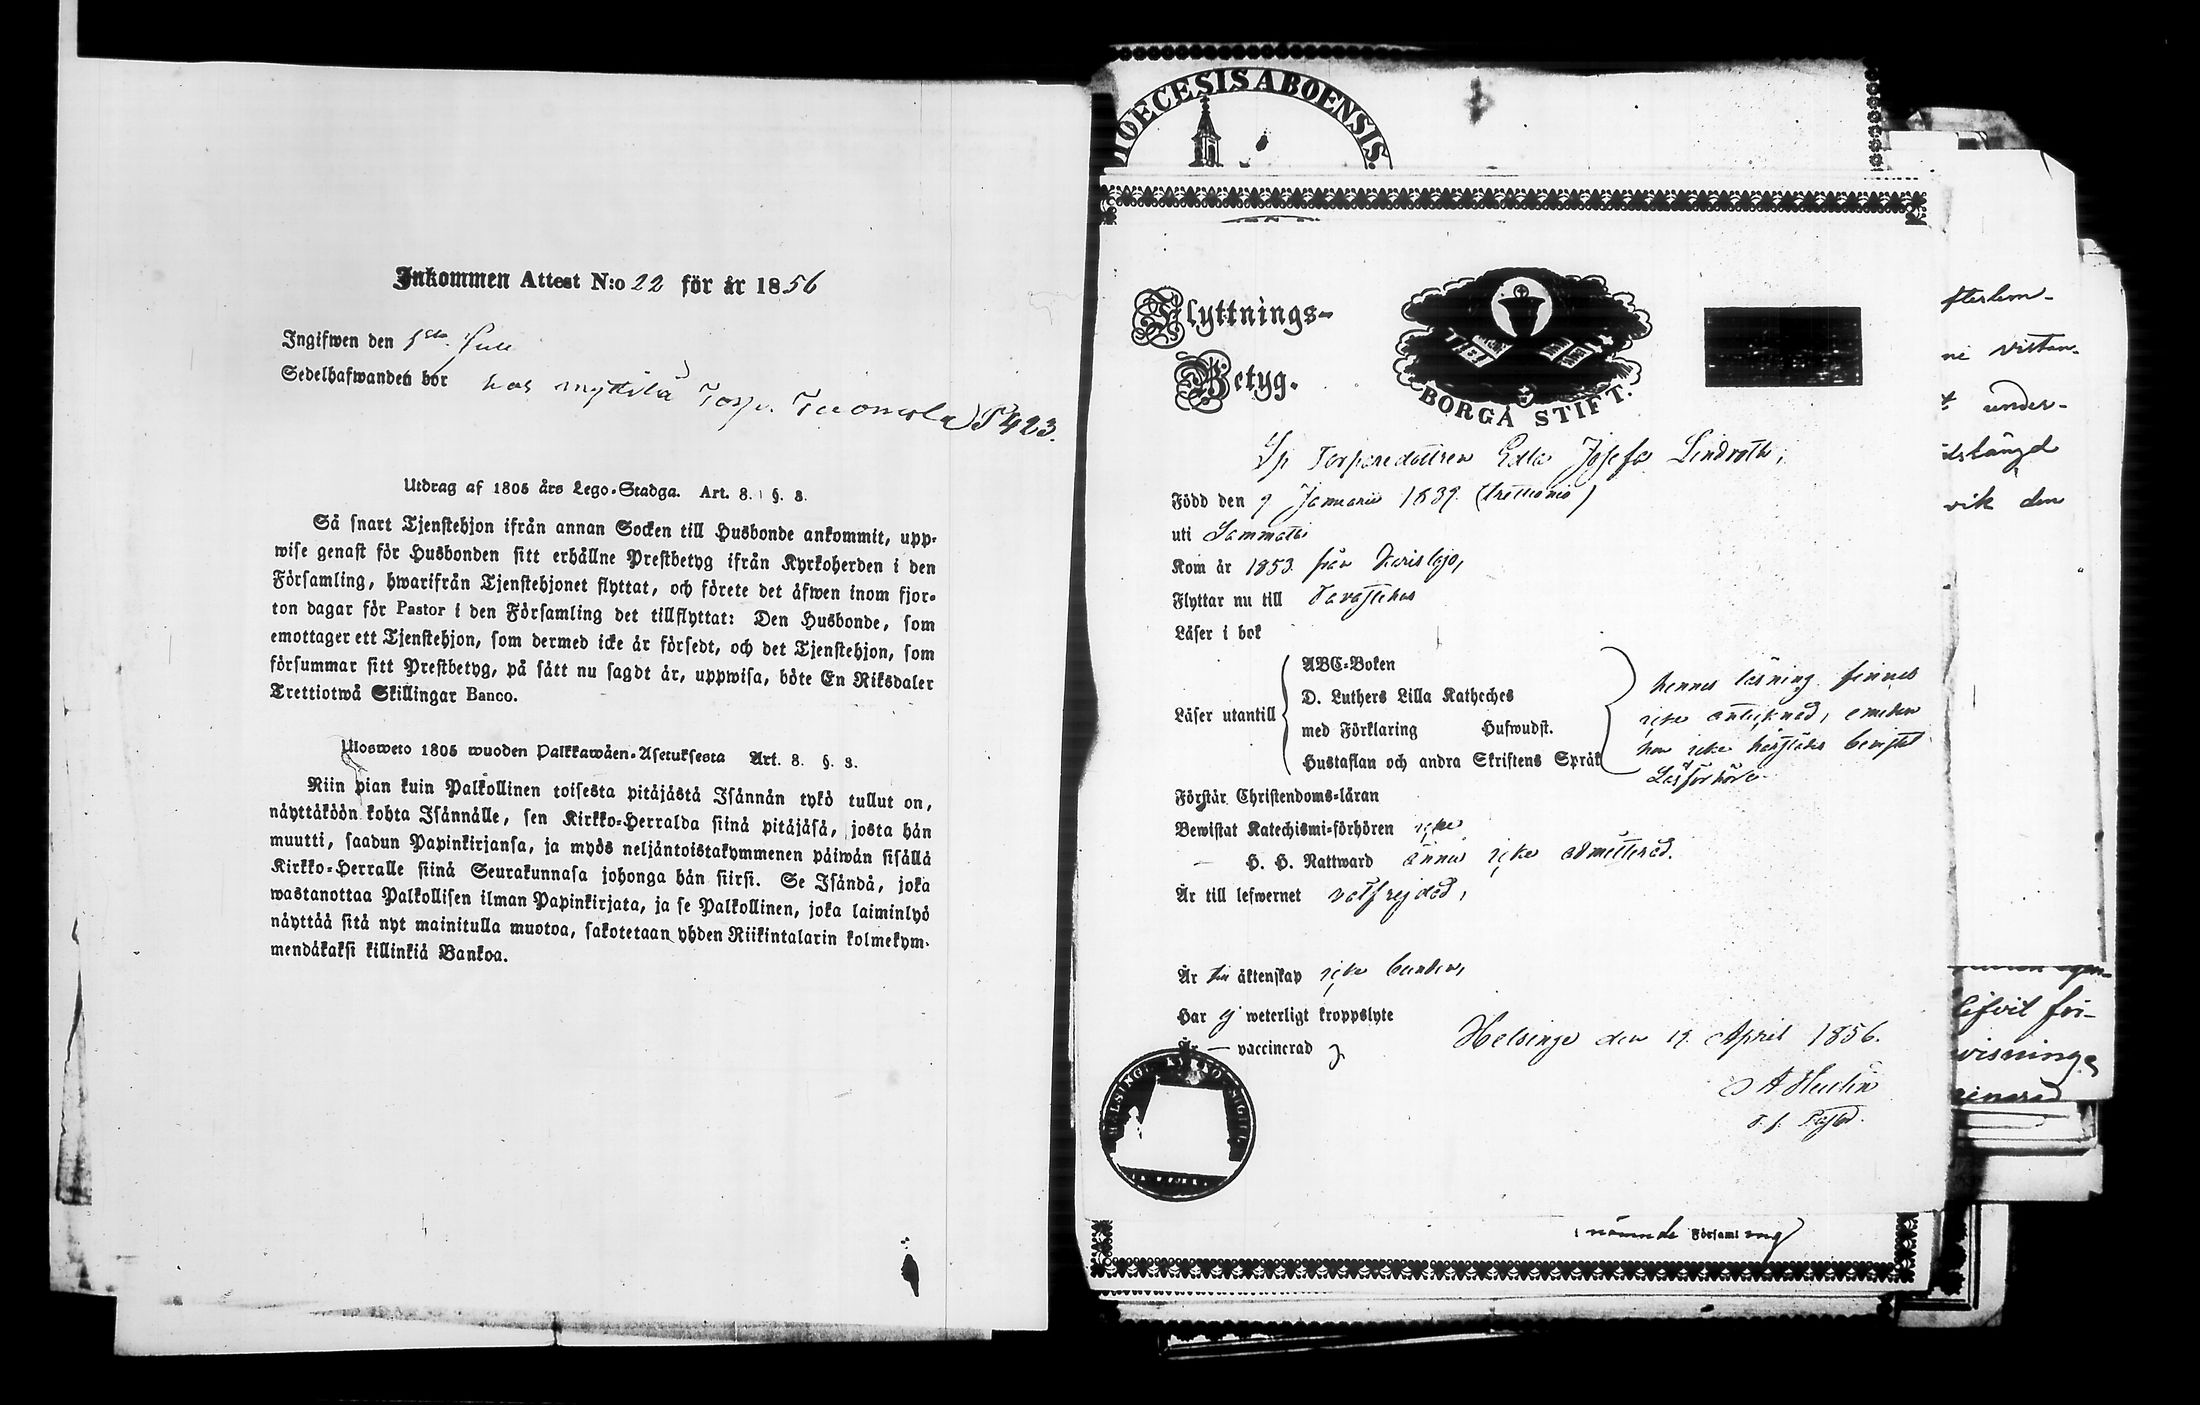 Inkommen Attest N:o 22 för år 1856
Ingifwen den 1sta Juli
Sedelhafwanden bor hos Myttilä Torp. Tuomola P 423.
Utdrag af 1805 års Lego-Stadga. Art. 8. §. 3.
Så snart Tjenstehjon ifrån annan Socken till Husbonde ankommit, upp-
wise genast för Husbonden sitt erhållne Prestbetyg ifrån Kyrkoherden i den
Församling, hwarifrån Tjenstehjonet flyttat, och förete det äfwen inom fjor-
ton dagar för Pastor i den Församling det tillflyttat: Den Husbonde, som
emottager ett Tjenstehjon, som dermed icke är försedt, och det Tjenstehjon, som
försummar sitt Prestbetyg, på sätt nu sagdt är, uppwisa, böte En Riksdaler
Trettiotwå Skillingar Banco.
Ulosweto 1805 wuoden Palkkawäen-Asetuksesta Art. 8. §. 3.
Niin pian kuin Palkollinen toisesta pitäjästä Isännän tykö tullut on,
näyttäköön kohta Isännälle, sen Kirkko-Herralda siinä pitäjäsä, josta hän
muutti, saadun Papinkirjansa, ja myös neljäntoistakymmenen päiwän sisällä
Kirkko-Herralle siinä Seurakunnasa johonga hän siirsi. Se Isändä, joka
wastanottaa Palkollisen ilman Papinkirjata, ja se Palkollinen, joka laiminlyö
näyttää sitä nyt mainitulla muotoa, sakotetaan yhden Riikintalarin kolmekym-
mendäkaksi killinkiä Bankoa.
DIOECESIS ABOENSIS.
Flyttnings-
Betyg.
BORGÅ STIFT.
Sp Torparedottren Edla Josefa Lindroth,
Född den 9 Januarii 1839. (trettionio)
uti Sammatti
Kom år 1853. från Karislojo,
Flyttar nu till Tavastehus
Läser i bok
Läser utantill
ABC-Boken
D. Luthers Lilla Katheches
med Förklaring Hufwudst.
Hustaflan och andra Skriftens Språk
hennes läsning finnes
icke antecknad, emedan
hon icke härstädes bevistat
Läsförhör.
Förstår Christendoms-läran
Bewistat Katechismi-förhören icke
— H. H. Nattward ännu icke admitterad.
Är till lefwernet välfrejdad,
Är till äktenskap icke bunden,
Har ej weterligt kroppslyte
Är — vaccinerad
Helsinge den 19. April 1856.
A Heulin
t. f. Pastor.
HELSINGE KYRKO SIGILL
nämnde Församling
ni vistan-
under-
vik den